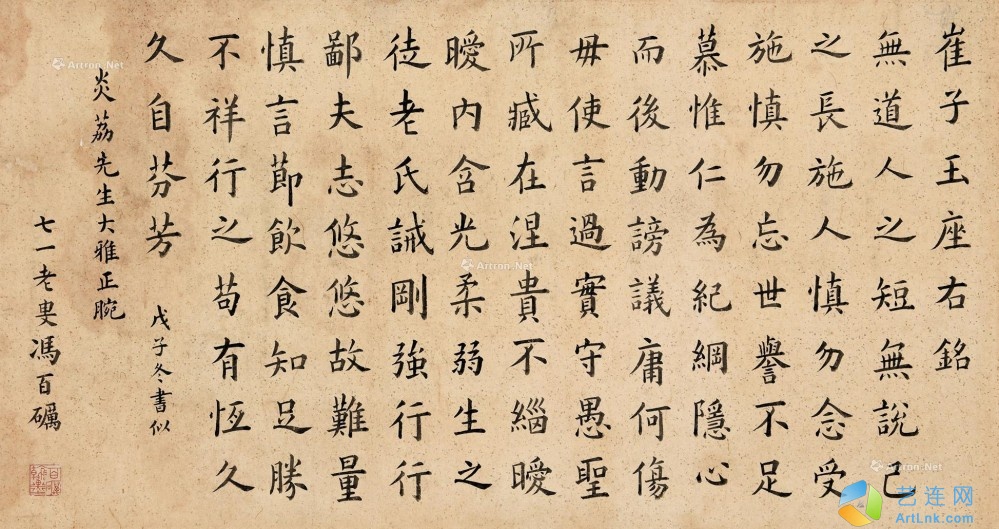 崔子玉座右銘
無道人之短無說己
之長施人慎勿念受
施慎勿忘世譽不足
慕惟仁為紀綱隱心
而後動謗議庸何傷
毋使言過實守愚聖
所臧在涅貴不緇曖
曖內含光柔弱生之
徒老氏誡剛強行行
鄙夫志悠悠故難量
慎言節飲食知足勝
不祥行之苟有恆久
久自芬芳
戊子冬書似
炎荔先生大雅正腕
七一老叟馮百礪
Artron.Net
Artron.Net
Artron.Net
Artron.Net
艺连网
ArtLnk.com